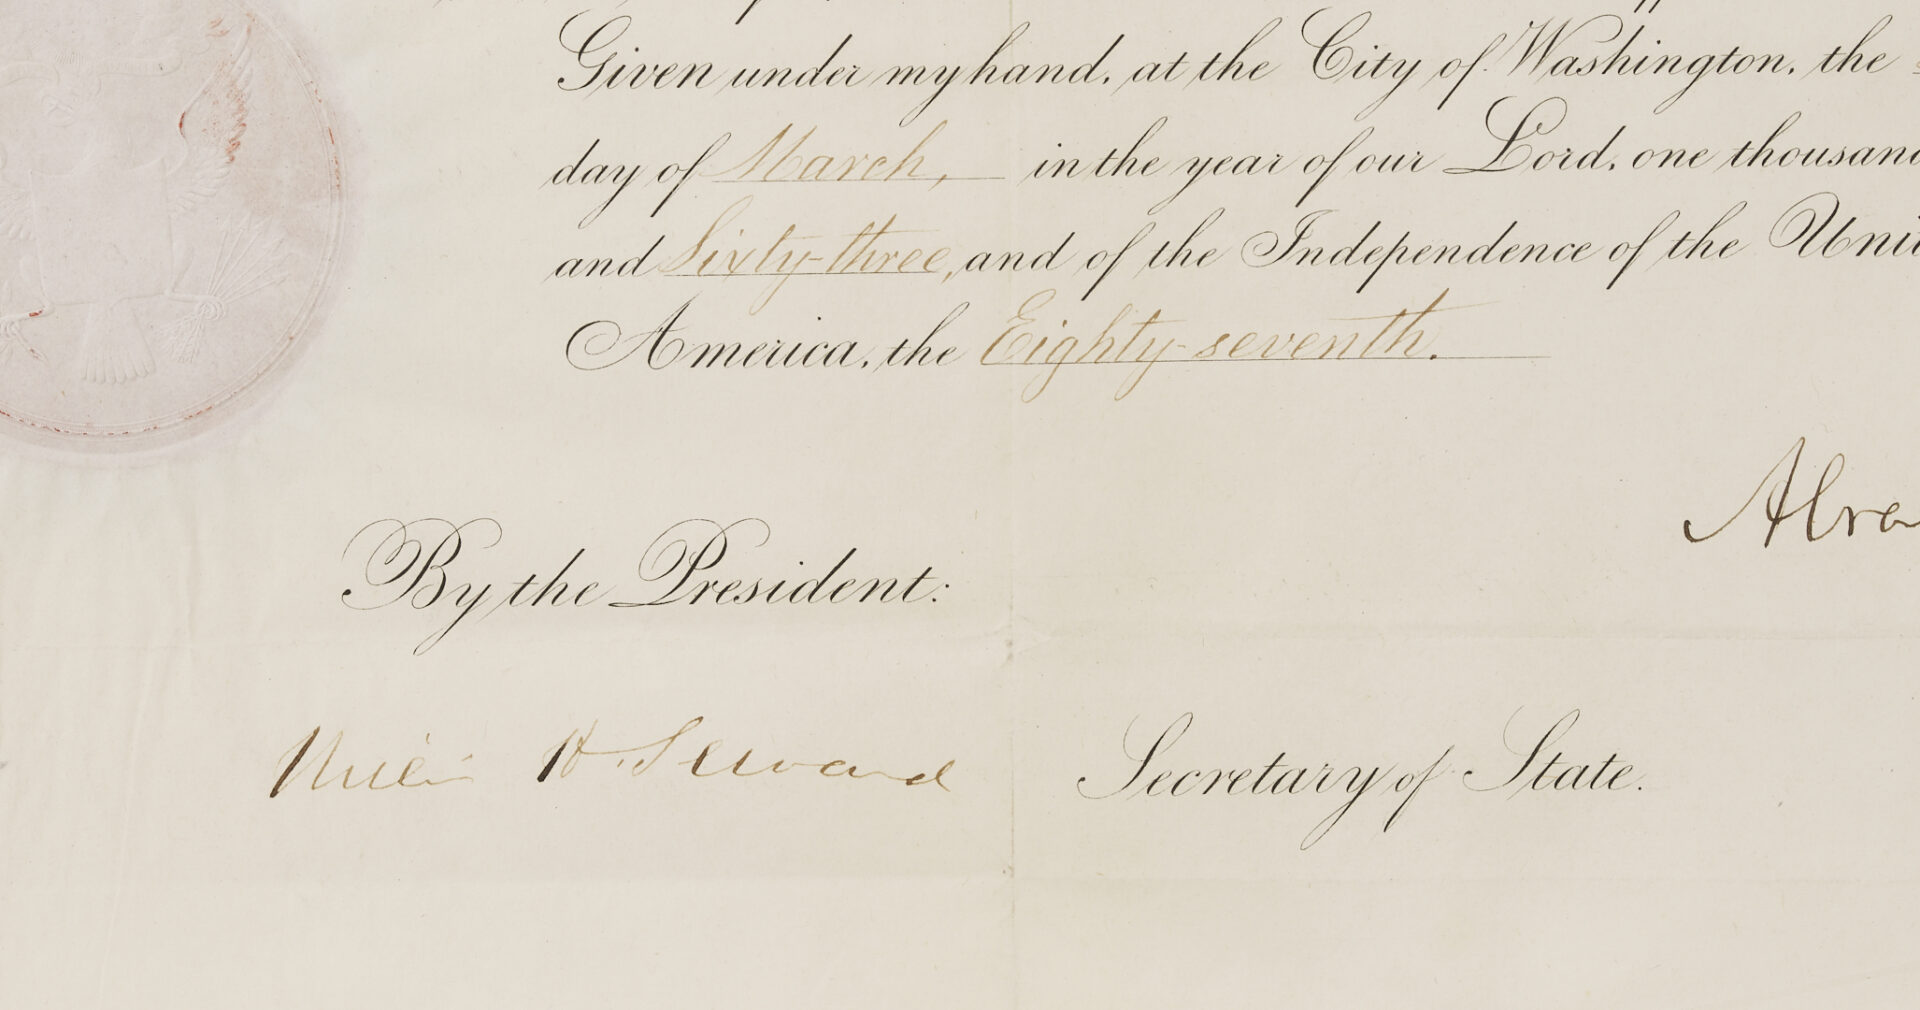 Given under my hand, at the City of Washington, the
day of March, in the year of our Lord, one thousand
and Sixty-three, and of the Independence of the Unit
America, the Eighty-seventh.
Abra
By the President:
William H. Seward Secretary of State.